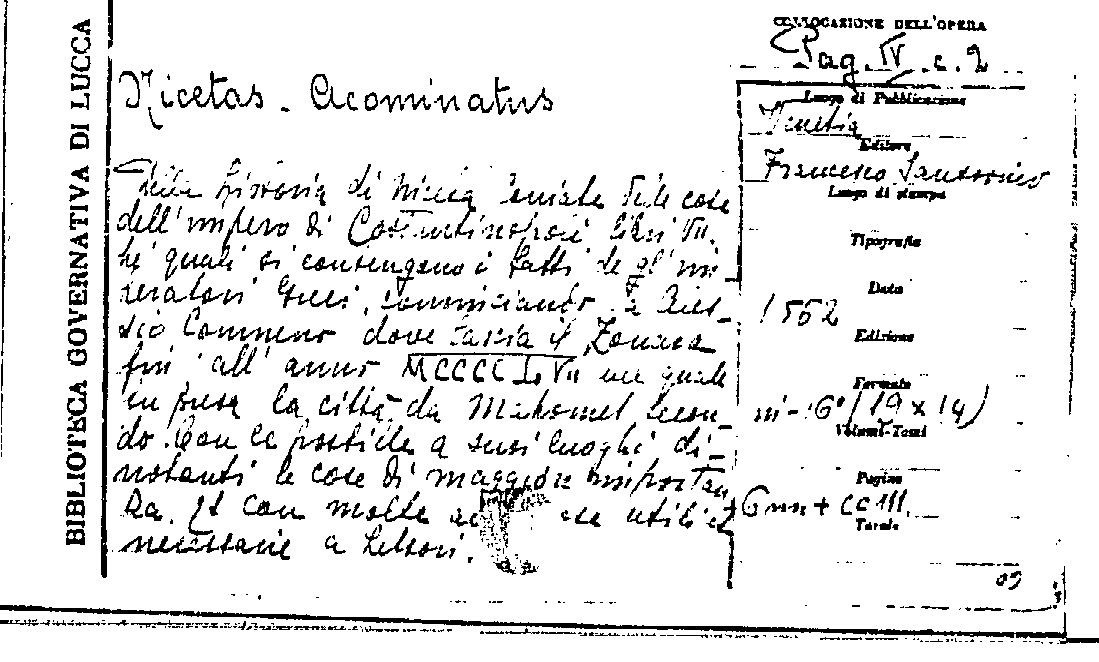 BIBLIOTECA GOVERNATIVA DI LUCCA
COLLOCAZIONE DELL'OPERA
Pag. IV. c. 2
Nicetas - Acominatus
Della historia di Niceta Coniate delle cose
dell'impero di Costantinopoli libri VII.
Ne quali si contengono i fatti de gl'im
peratori Greci, cominciando da Ales-
sio Comneno dove lascia il Zonara
fin all'anno MCCCCLVII nel quale
fu presa la città da Mahomet secon
do. Con le postille a suoi luoghi di-
notanti le cose di maggiore importan
za. Et con molte utili et
necessarie a Lettori.
Luogo di Pubblicazione
Venetia
Editore
Francesco Sansovino
Luogo di stampa
Tipografia
Data
1562
Edizione
Formato
in-16° (19 x 14)
Volumi-Tomi
Pagine
6 nn + cc 111.
Tavole